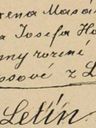 rena Masa
a Josefa Ho
ny rozené
ssové z L
Letin.